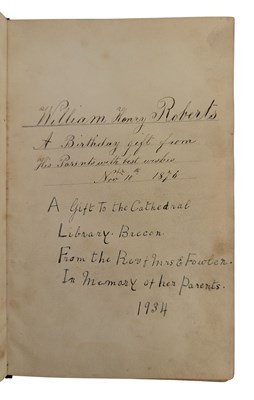 William Henry Roberts
A Birthday gift from
His Parents with best wishes
Novbr 11th 1876
A Gift to the Cathedral
Library. Brecon.
From the Rev & Mrs E Fowler.
In Memory of her Parents.
1934